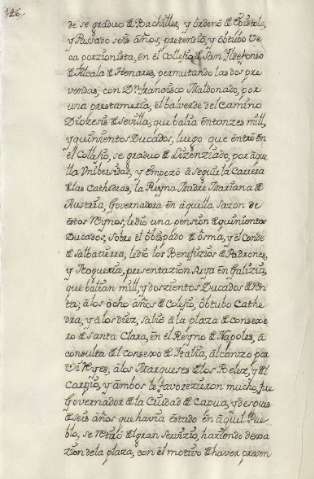 126.
de se graduó de Bachiller, y ordenó de
y Passado seis años, pretendió, y obtubo Be
ca porzionista, en el Collesio de San Ildefonso
de Alcalá de Henares, permutando las dos pre
vendas, con Dn. Francisco Maldonado, por
una prestamería, el balverde del Camino
Diozesis de Sevilla, que balia entonzes mill,
y quinientos Ducados, luego que entró en
el Collesio, se graduó de Lizenziado, por aque
lla Unibersidad, y empezó a seguir la Carrera
de las Cathedras, la Reyna Madre Mariana de
Austria, Governadora en aquella sazon de
estos Reynos, le dió una pension de quinientos
Ducados, sobre el obispado de Osma, y el Conde
de Salbatierra, le dió los Benefizios de Padrones,
y Nogueria, presentazion suya en Galizia,
que balian mill, y doszientos Ducados de Ren
ta; a los ocho años de Colesio, obtubo Cathe
dra, y a los diez, salió a la plaza de consexero
de Santa Clara, en el Reyno de Napoles, a
consulta del Consexo de Italia, alcanzó por
Vi Reyes, a los Marqueses de los Velez, y del
Carpio, y ambos le faborezieron mucho, fue
Governador de la Ciudad de Capua, y despues
de seis años que havia estado en aquel Pue
blo, se retiró del gran Servizio, haziendo dexa
zion de la plaza, con el motivo de haver